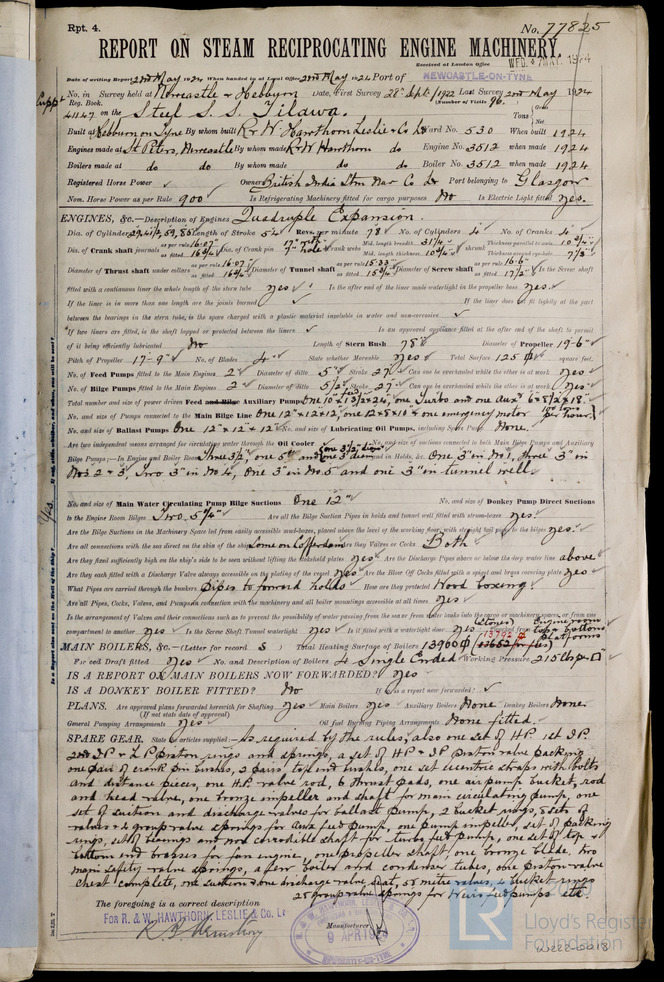 Rpt. 4.
No. 77825
REPORT ON STEAM RECIPROCATING ENGINE MACHINERY.
Received at London Office WED. 7 MAY. 1924
Date of writing Report 2nd May 1924 When handed in at Local Office 2nd May 1924 Port of NEWCASTLE-ON-TYNE
No. in Survey held at Newcastle & Hebburn Date, First Survey 28th Sept. 1922 Last Survey 2nd May 1924
Reg. Book. (Number of Visits 96.)
Suppt 41147 on the Steel S. S. Tilawa. Tons
Built at Hebburn on Tyne By whom built R & W Hawthorn Leslie & Co Ld Yard No. 530 When built 1924
Engines made at St Peters, Newcastle By whom made R & W Hawthorn do Engine No. 3512 when made 1924
Boilers made at do do By whom made do do Boiler No. 3512 when made 1924
Registered Horse Power Owners British India Stm Nav Co Ld Port belonging to Glasgow
Nom. Horse Power as per Rule 900 Is Refrigerating Machinery fitted for cargo purposes No Is Electric Light fitted Yes.
ENGINES, &c.—Description of Engines Quadruple Expansion.
Dia. of Cylinders 29, 41½, 59, 85 Length of Stroke 54 Revs. per minute 78 No. of Cylinders 4 No. of Cranks 4
Dia. of Crank shaft journals as per rule 16.07 as fitted 16¾ Dia. of Crank pin 17" Crank webs Mid. length breadth 31¼ Mid. length thickness 10¾ shrunk Thickness parallel to axis 10¾ Thickness around eye-hole 7⅞
Diameter of Thrust shaft under collars as per rule 16.07 as fitted 16¾ Diameter of Tunnel shaft as per rule 15.33 as fitted 15¾ Diameter of Screw shaft as per rule 16.6 as fitted 17½ Is the Screw shaft
fitted with a continuous liner the whole length of the stern tube yes Is the after end of the liner made watertight in the propeller boss yes.
If the liner is in more than one length are the joints burned If the liner does not fit tightly at the part
between the bearings in the stern tube, is the space charged with a plastic material insoluble in water and non-corrosive
If two liners are fitted, is the shaft lapped or protected between the liners Is an approved appliance fitted at the after end of the shaft to permit
of it being efficiently lubricated No Length of Stern Bush 78" Diameter of Propeller 19-6"
Pitch of Propeller 17-9" No. of Blades 4 State whether Moveable Yes Total Surface 125 square feet.
No. of Feed Pumps fitted to the Main Engines 2 Diameter of ditto 5 Stroke 27 Can one be overhauled while the other is at work Yes
No. of Bilge Pumps fitted to the Main Engines 2 Diameter of ditto 5½ Stroke 27 Can one be overhauled while the other is at work Yes
Total number and size of power driven Feed and Bilge Auxiliary Pumps One 10 x 13½ x 24, one Turbo and one Aux 6 x 8½ x 18.
No. and size of Pumps connected to the Main Bilge Line One 12" x 12 x 12, one 12 x 8 x 10 & one emergency motor 100 tons per hour.
No. and size of Ballast Pumps One 12" x 12" x 12 No. and size of Lubricating Oil Pumps, including Spare Pump None.
Are two independent means arranged for circulating water through the Oil Cooler No. and size of suctions connected to both Main Bilge Pumps and Auxiliary
Bilge Pumps;—In Engine and Boiler Room Three 3½", one 5" and one 3" diam and in Holds, &c. One 3" in No 1, three 3" in
Nos 2 & 3, Two 3" in No 4, One 3" in No 5 and one 3" in tunnel well.
No. and size of Main Water Circulating Pump Bilge Suctions One 12" No. and size of Donkey Pump Direct Suctions
to the Engine Room Bilges Two. 5¾" Are all the Bilge Suction Pipes in holds and tunnel well fitted with strum-boxes yes.
Are the Bilge Suctions in the Machinery Space led from easily accessible mud-boxes, placed above the level of the working floor, with straight tail pipes to the bilges yes.
Are all connections with the sea direct on the skin of the ship Some on Cofferdams Are they Valves or Cocks Both
Are they fixed sufficiently high on the ship's side to be seen without lifting the stokehold plates yes Are the Discharge Pipes above or below the deep water line above
Are they each fitted with a Discharge Valve always accessible on the plating of the vessel yes Are the Blow Off Cocks fitted with a spigot and brass covering plate yes
What Pipes are carried through the bunkers Pipes to forward holds How are they protected Wood boxing.
Are all Pipes, Cocks, Valves, and Pumps in connection with the machinery and all boiler mountings accessible at all times yes
Is the arrangement of Valves and their connections such as to prevent the possibility of water passing from the sea or from water tanks into the cargo or machinery spaces, or from one
compartment to another yes Is the Screw Shaft Tunnel watertight yes Is it fitted with a watertight door yes worked from Engine room top & bottom platforms
MAIN BOILERS, &c.—(Letter for record S Total Heating Surface of Boilers 13900
Forced Draft fitted yes No. and Description of Boilers 4 Single Ended Working Pressure 215 lbs per □"
IS A REPORT ON MAIN BOILERS NOW FORWARDED? yes
IS A DONKEY BOILER FITTED? No If so, is a report now forwarded?
PLANS. Are approved plans forwarded herewith for Shafting Yes Main Boilers Yes Auxiliary Boilers None Donkey Boilers None.
(If not state date of approval)
General Pumping Arrangements Yes Oil fuel Burning Piping Arrangements None fitted.
SPARE GEAR. State the articles supplied:— As required by the rules, also one set of HP. 1st IP.
2nd IP & LP piston rings and springs, a set of HP & IP piston valve packing
one pair of crank pin bushes, 2 pairs top end bushes, one set eccentric straps with bolts
and distance pieces, one H.P. valve rod, 6 thrust pads, one air pump bucket, rod
and head valve, one bronze impeller and shaft for main circulating pump, one
set of suction and discharge valves for ballast pump, 2 bucket rings, 8 sets of
valves & 4 group valve springs for aux feed pump, one pump impeller, set of packing
rings, set of bearings and non corrodible shaft for turbo feed pump, one set of top &
bottom end brasses for fan engine, one propeller shaft, one bronze blade, two
main safety valve springs, a few boiler and condenser tubes, one piston valve
chest complete, one suction & one discharge valve seat, valves, 4 bucket rings
25 group valve springs for Weirs feed pumps etc
The foregoing is a correct description
FOR R. & W. HAWTHORN, LESLIE & CO. LD
Manufacturer.
9 APR 19
NEWCASTLE-ON-TYNE
LR
Lloyd's Register
Foundation
W222-0018